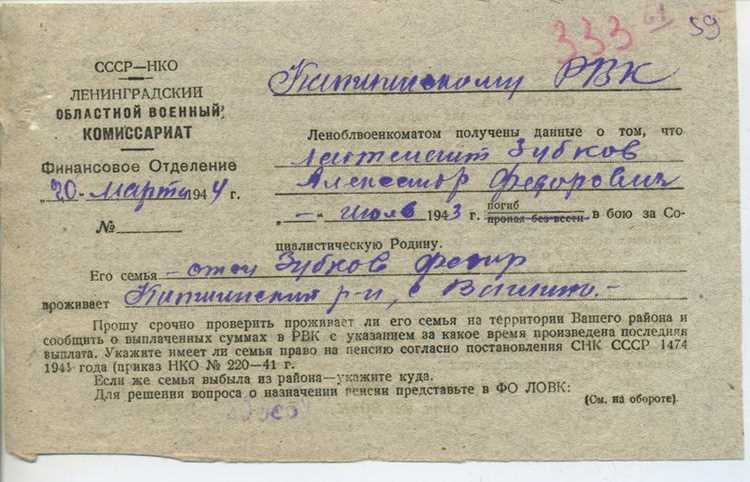 333 61 59
СССР—НКО
ЛЕНИНГРАДСКИЙ
ОБЛАСТНОЙ ВОЕННЫЙ
КОМИССАРИАТ
Финансовое Отделение
„20" марта 1944 г.
№
Капшинскому РВК
Леноблвоенкоматом получены данные о том, что
лейтенант Зубков
Александр Федорович
„—" июль 1943 г. погиб
пропал без вести в бою за Со-
циалистическую Родину.
Его семья — отец Зубков Федор
проживает Капшинский р-н, с
Прошу срочно проверить проживает ли его семья на территории Вашего района и
сообщить о выплаченных суммах в РВК с указанием за какое время произведена последняя
выплата. Укажите имеет ли семья право на пенсию согласно постановления СНК СССР 1474
1941 года (приказ НКО № 220—41 г.
Если же семья выбыла из района—укажите куда.
Для решения вопроса о назначении пенсии представьте в ФО ЛОВК:
(См. на обороте)